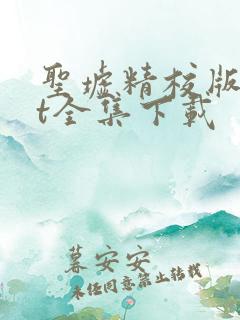 聖墟精校版
t全集下載
暮安安
未经同意禁止转载